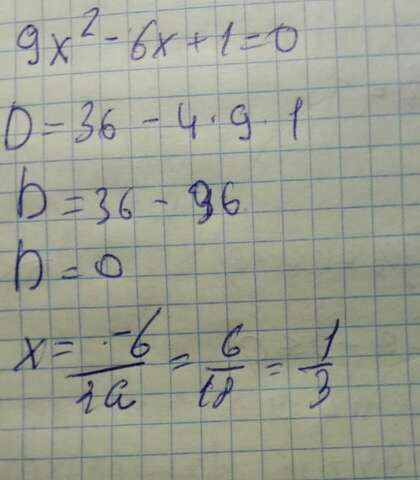 9x² - 6x + 1 = 0
D = 36 - 4 · 9 · 1
D = 36 - 36
D = 0
x = -b/2a = 6/18 = 1/3